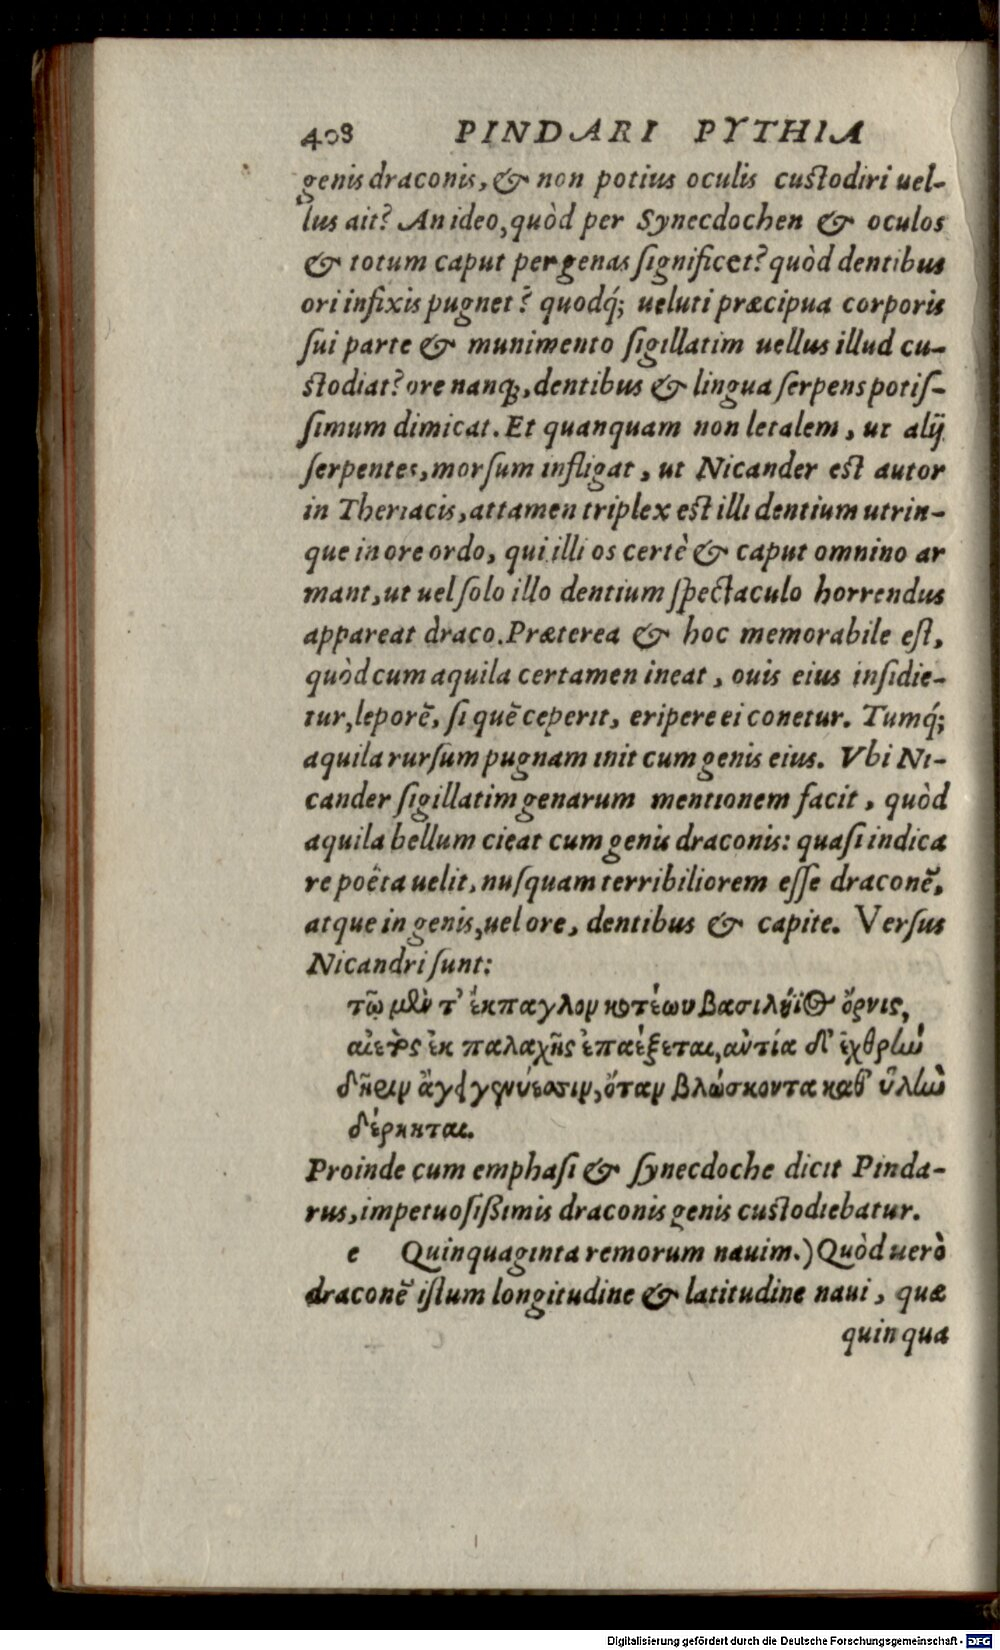 408 PINDARI PYTHIA
genis draconis, & non potius oculis custodiri uel-
lus ait? An ideo, quòd per Synecdochen & oculos
& totum caput per genas significet? quòd dentibus
ori infixis pugnet? quodq́; ueluti præcipua corporis
sui parte & munimento sigillatim uellus illud cu-
stodiat? ore nanq;, dentibus & lingua serpens potis-
simum dimicat. Et quanquam non letalem, ut alij
serpentes, morsum infligat, ut Nicander est autor
in Theriacis, attamen triplex est illi dentium utrin-
que in ore ordo, qui illi os certè & caput omnino ar
mant, ut uel solo illo dentium spectaculo horrendus
appareat draco. Præterea & hoc memorabile est,
quòd cum aquila certamen ineat, ouis eius insidie-
tur, leporẽ, si quẽ ceperit, eripere ei conetur. Tumq́;
aquila rursum pugnam init cum genis eius. Vbi Ni-
cander sigillatim genarum mentionem facit, quòd
aquila bellum cieat cum genis draconis: quasi indica
re poëta uelit, nusquam terribiliorem esse draconẽ,
atque in genis, uel ore, dentibus & capite. Versus
Nicandri sunt:
τῷ μὲν τ' ἔκπαγλον κοτέων βασιλήϊος ὄρνις,
αἰετὸς ἐκ παλαχῆς ἐπαέξεται, αὐτία δ' ἐχθρὴν
δῆριν ἄγει γενύεσσιν, ὅταν βλώσκοντα καθ' ὕλην
δέρκηται.
Proinde cum emphasi & synecdoche dicit Pinda-
rus, impetuosißimis draconis genis custodiebatur.
e Quinquaginta remorum nauim.) Quòd uerò
draconẽ istum longitudine & latitudine naui, quæ
quinqua
Digitalisierung gefördert durch die Deutsche Forschungsgemeinschaft - DFG